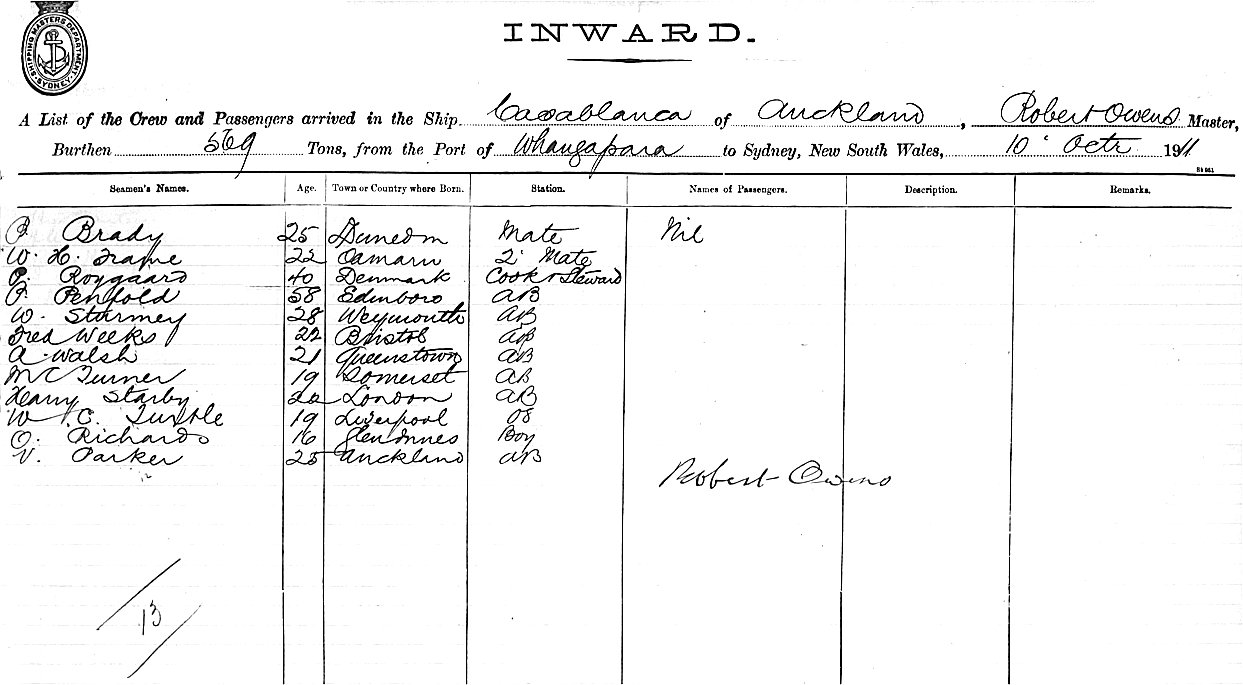 SHIPPING MASTERS DEPARTMENT SYDNEY
INWARD.
A List of the Crew and Passengers arrived in the Ship Casablanca of Auckland, Robert Owens Master,
Burthen 569 Tons, from the Port of Whangapara to Sydney, New South Wales, 10' Octr 1911
Seamen's Names. Age. Town or Country where Born. Station. Names of Passengers. Description. Remarks.
P. Brady 25 Dunedin Mate Nil
W. H. Frame 22 Oamaru 2' Mate
P. Roygaard 40 Denmark Cook & Steward
P. Penfold 58 Edinboro AB
W. Sturmey 28 Weymouth AB
Fred Weeks 22 Bristol AB
A. Walsh 21 Queenstown AB
M C Turner 19 Somerset AB
Harry Starby London AB
W. C. Turtle 19 Liverpool OS
O. Richards 16 Glen Innes Boy
V. Parker 25 Auckland AB
Robert Owens
12
13